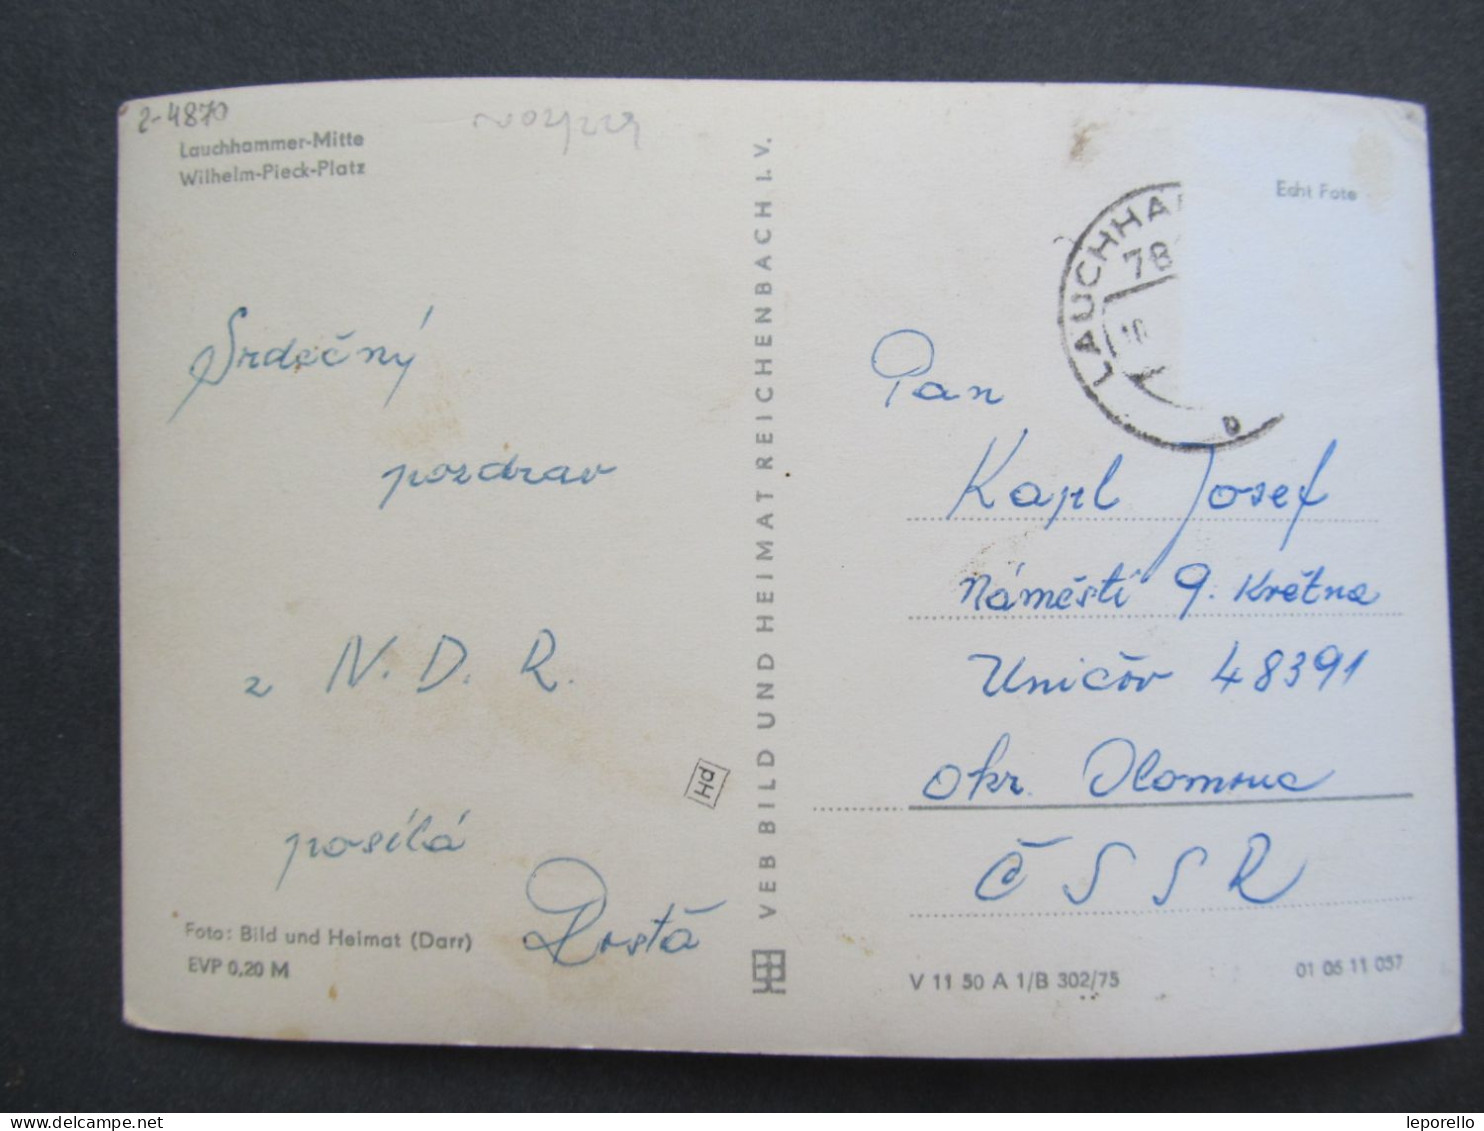 2-4870
Lauchhammer-Mitte
Wilhelm-Pieck-Platz
Srdečný
pozdrav
z N. D. R.
posílá
Foto: Bild und Heimat (Darr)
EVP 0,20 M
Hd
VEB BILD UND HEIMAT REICHENBACH I. V.
Echt Foto
LAUCHHA
78
10
Pan
Kapl Josef
Náměstí 9. Května
Uničov 48391
okr. Olomouc
ČSSR
V 11 50 A 1/B 302/75
01 06 11 057
www.leporello